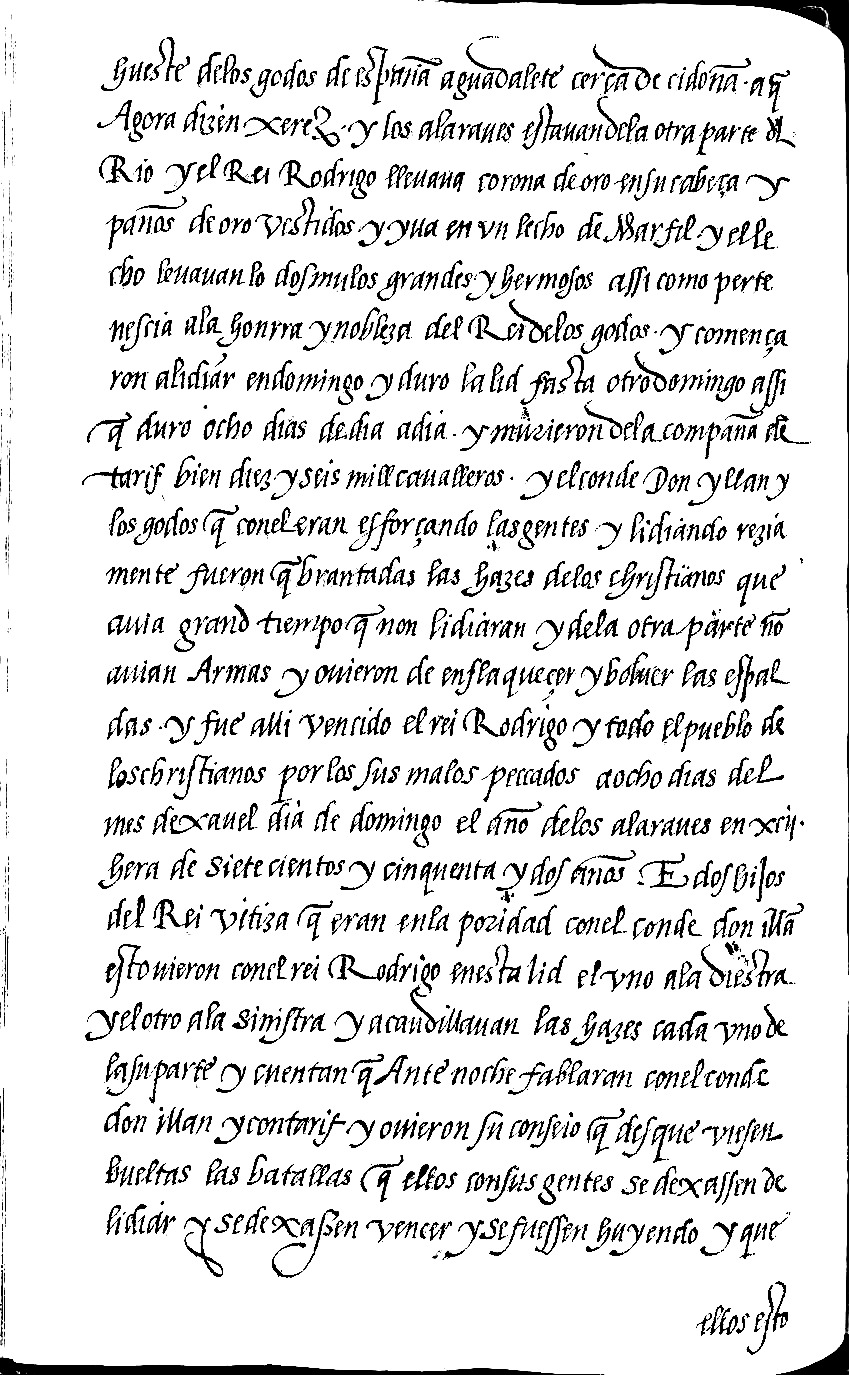 hueste delos godos de españa aguadalete cerça de cidoña · a q̃
Agora dizen xerez · y los alaraues estauan dela otra parte del
Rio y el Rei Rodrigo lleuaua corona de oro en su cabeça y
paños de oro vestidos y yua en vn lecho de Marfil y el le
cho leuauan lo dos mulos grandes y hermosos assi como perte
nescia ala honrra y nobleza del Rei delos godos · y comença
ron a lidiar en domingo y duro la lid fasta otro domingo assi
q̃ duro ocho dias de dia a dia · y murieron dela compaña de
tarif bien diez y seis mill caualleros · y el conde Don yllan y
los godos q̃ con el eran esforçando las gentes y lidiando rezia
mente fueron q̃brantadas las hazes delos christianos que
auia grand tiempo q̃ non lidiaran y dela otra parte nõ
auian Armas y ouieron de enflaqueçer y boluer las espal
das · y fue alli vencido el rei Rodrigo y todo el pueblo de
los christianos por los sus malos peccados a ocho dias del
mes de xauel dia de domingo el año delos alaraues en xcij·
hera de siete cientos y cinquenta y dos años · E dos hijos
del Rei vitiza q̃ eran en la poridad con el conde don illã
estouieron con el rei Rodrigo en esta lid el vno ala diestra
y el otro ala sinistra y acaudillauan las hazes cada vno de
la su parte y cuentan q̃ Ante noche fablaran con el conde
don illan y con tarif y ouieron su conseio q̃ desque viesen
bueltas las batallas q̃ ellos con sus gentes se dexassen de
lidiar y se dexassen vencer y se fuessen huyendo y que
ellos esto